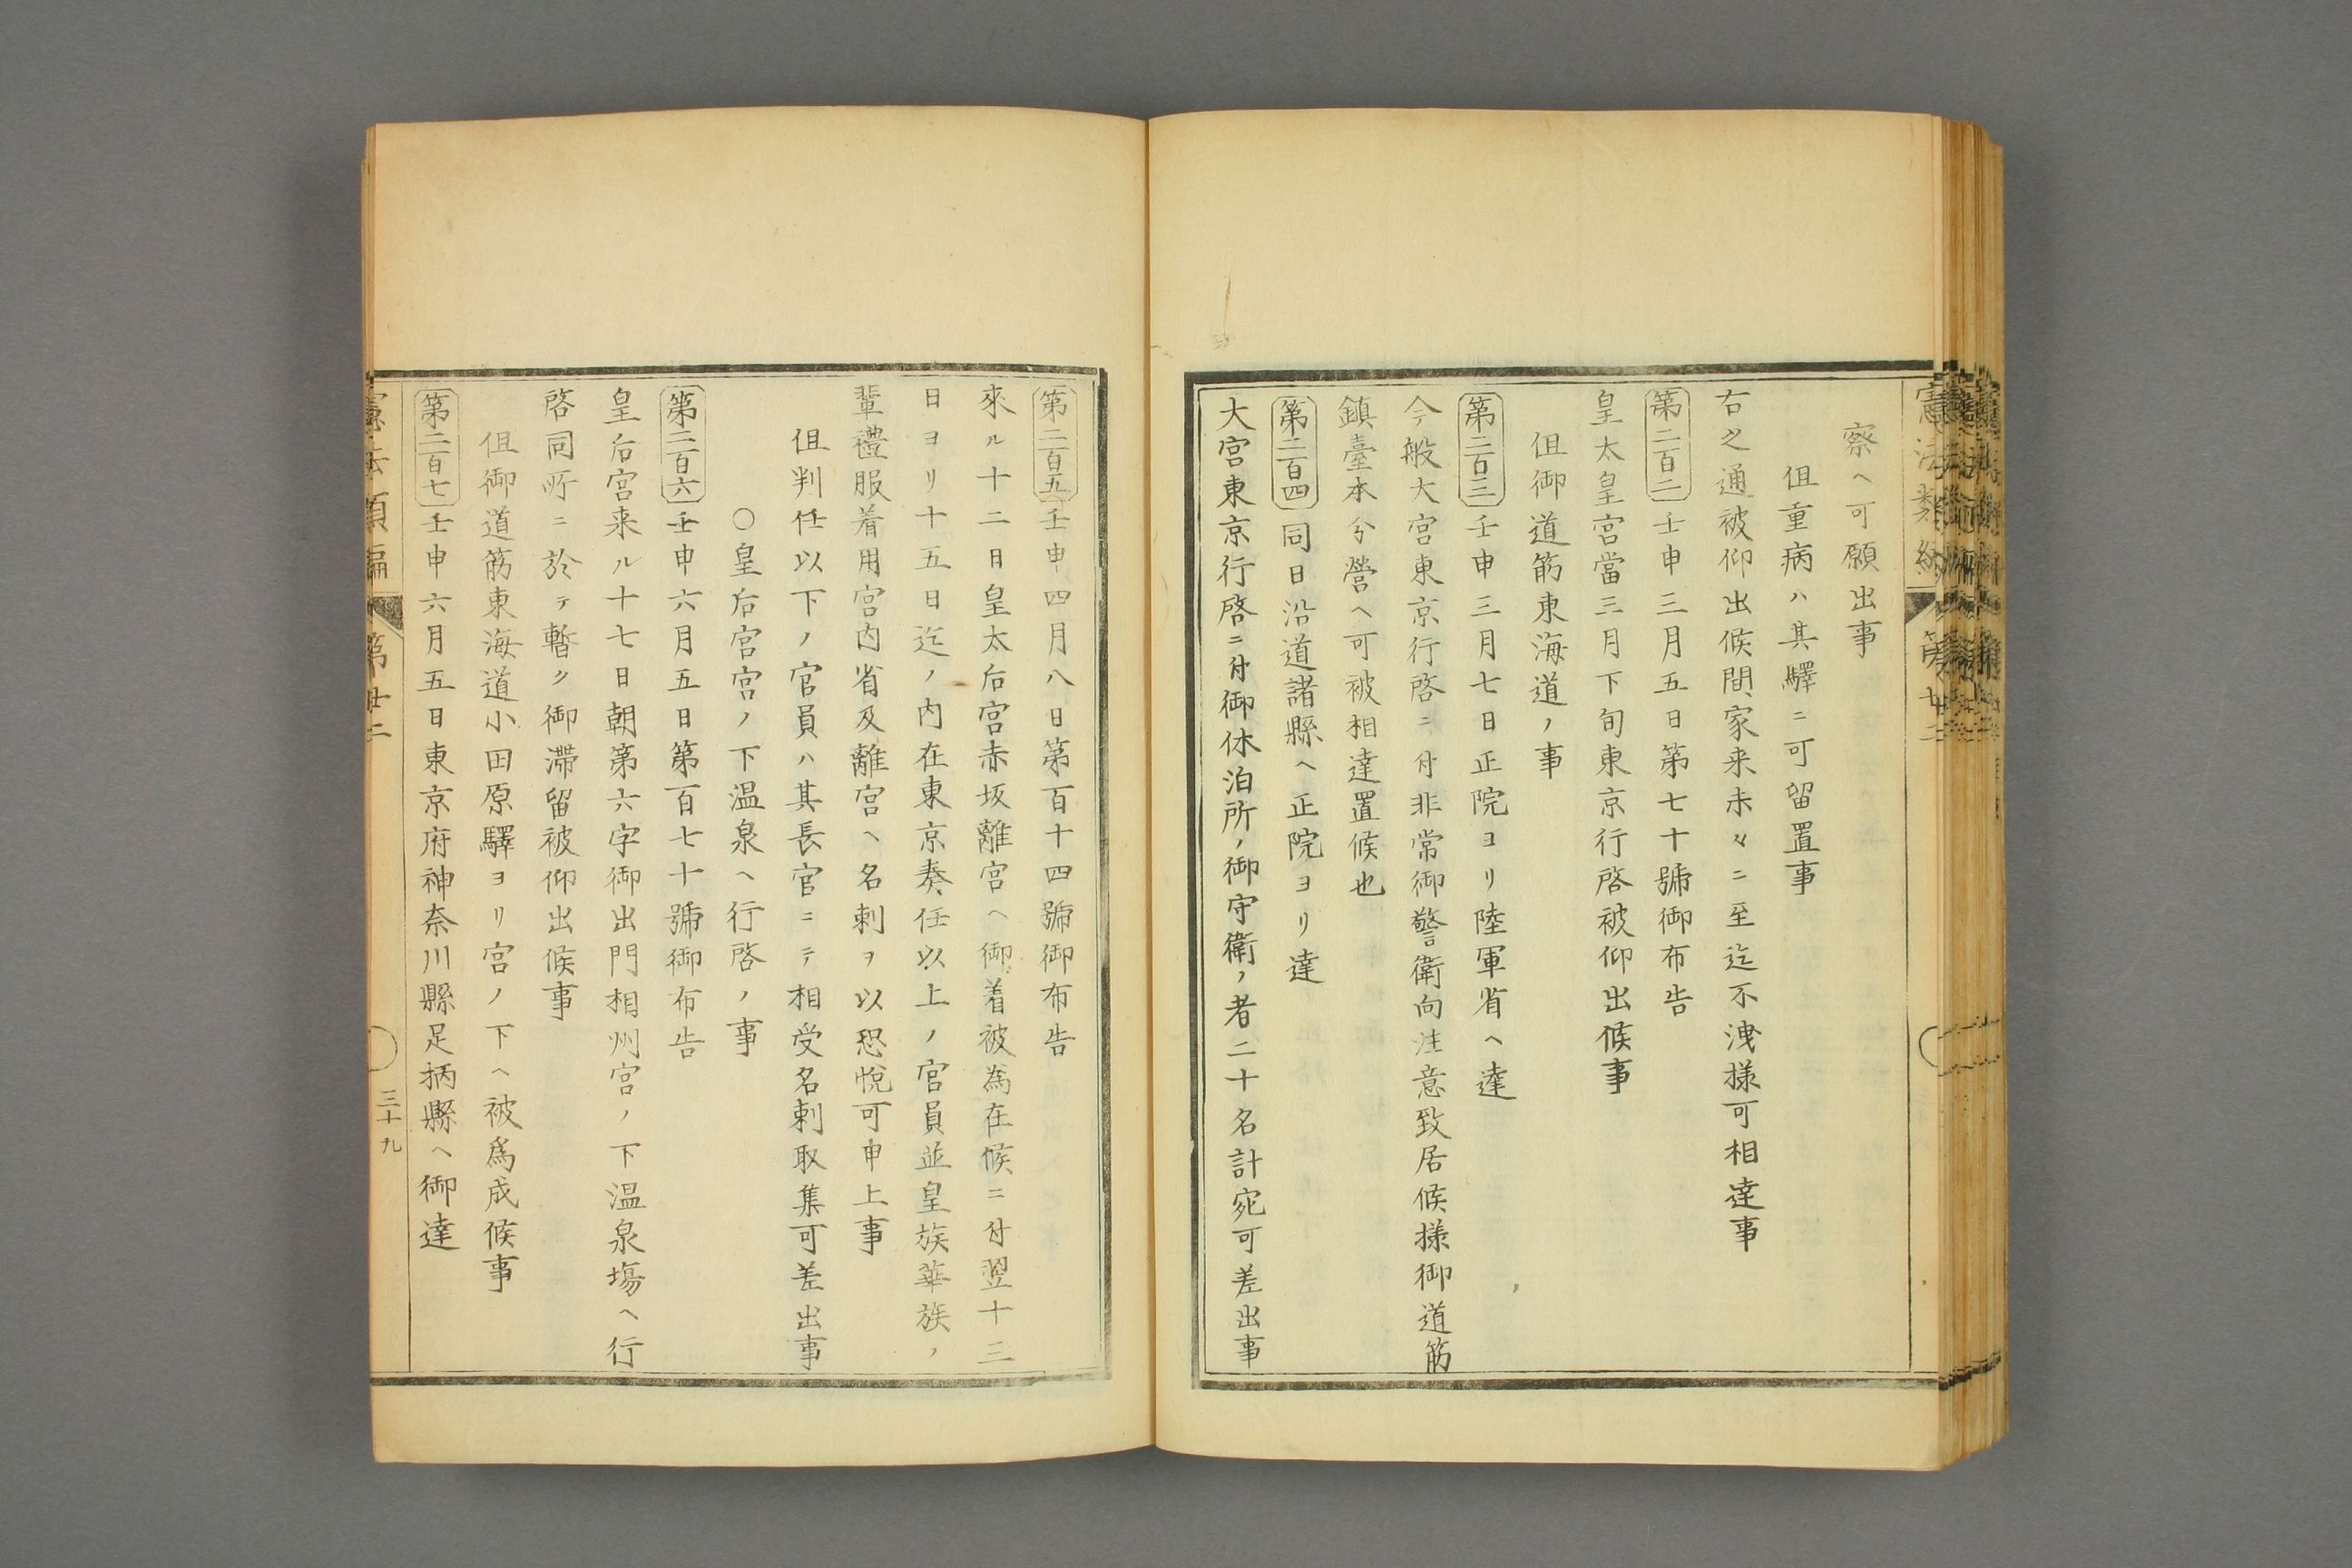 察ヘ可願出事
但重病ハ其驛ニ可留置事
右之通被仰出候間家来末々ニ至迄不洩様可相達事
第二百二 壬申三月五日第七十號御布告
皇太皇宮當三月下旬東京行啓被仰出候事
但御道筋東海道ノ事
第二百三 壬申三月七日正院ヨリ陸軍省ヘ達
今般大宮東京行啓ニ付非常御警衛向注意致居候様御道筋
鎮臺本分營ヘ可被相達置候也
第二百四 同日沿道諸縣ヘ正院ヨリ達
大宮東京行啓ニ付御休泊所ノ御守衛ノ者二十名計宛可差出事
第二百五 壬申四月八日第百十四號御布告
來ル十二日皇太后宮赤坂離宮ヘ御着被為在候ニ付翌十三
日ヨリ十五日迄ノ内在東京奏任以上ノ官員並皇族華族ノ
輩禮服着用宮内省及離宮ヘ名刺ヲ以恐悦可申上事
但判任以下ノ官員ハ其長官ニテ相受名刺取集可差出事
○皇后宮宮ノ下温泉ヘ行啓ノ事
第二百六 壬申六月五日第百七十號御布告
皇后宮来ル十七日朝第六字御出門相州宮ノ下温泉場ヘ行
啓同所ニ於テ暫ク御滞留被仰出候事
但御道筋東海道小田原驛ヨリ宮ノ下ヘ被為成候事
第二百七 壬申六月五日東京府神奈川縣足柄縣ヘ御達
憲法類編 第廿二
三十九